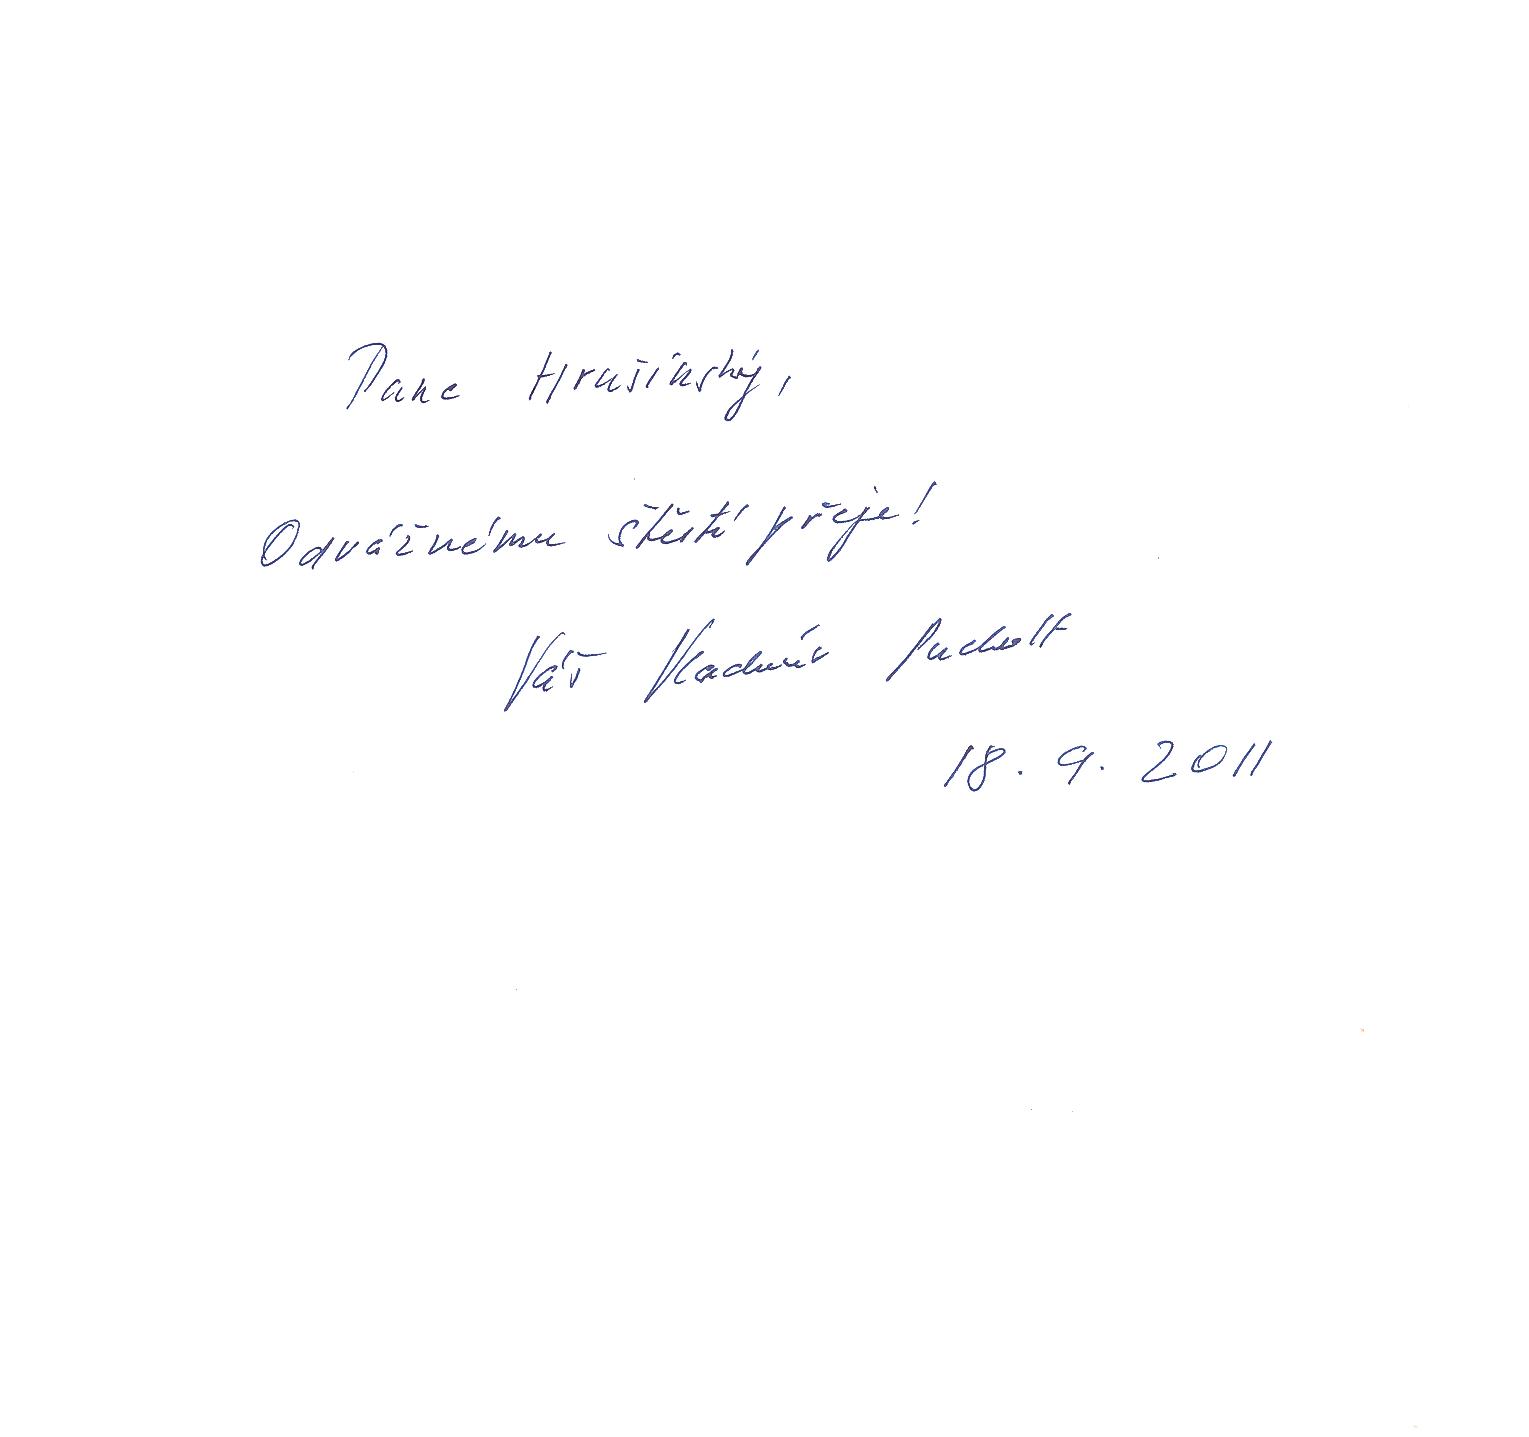 Pane Hrušínský,
Odvážnému štěstí přeje!
Váš Vladimír Pucholt
18. 9. 2011